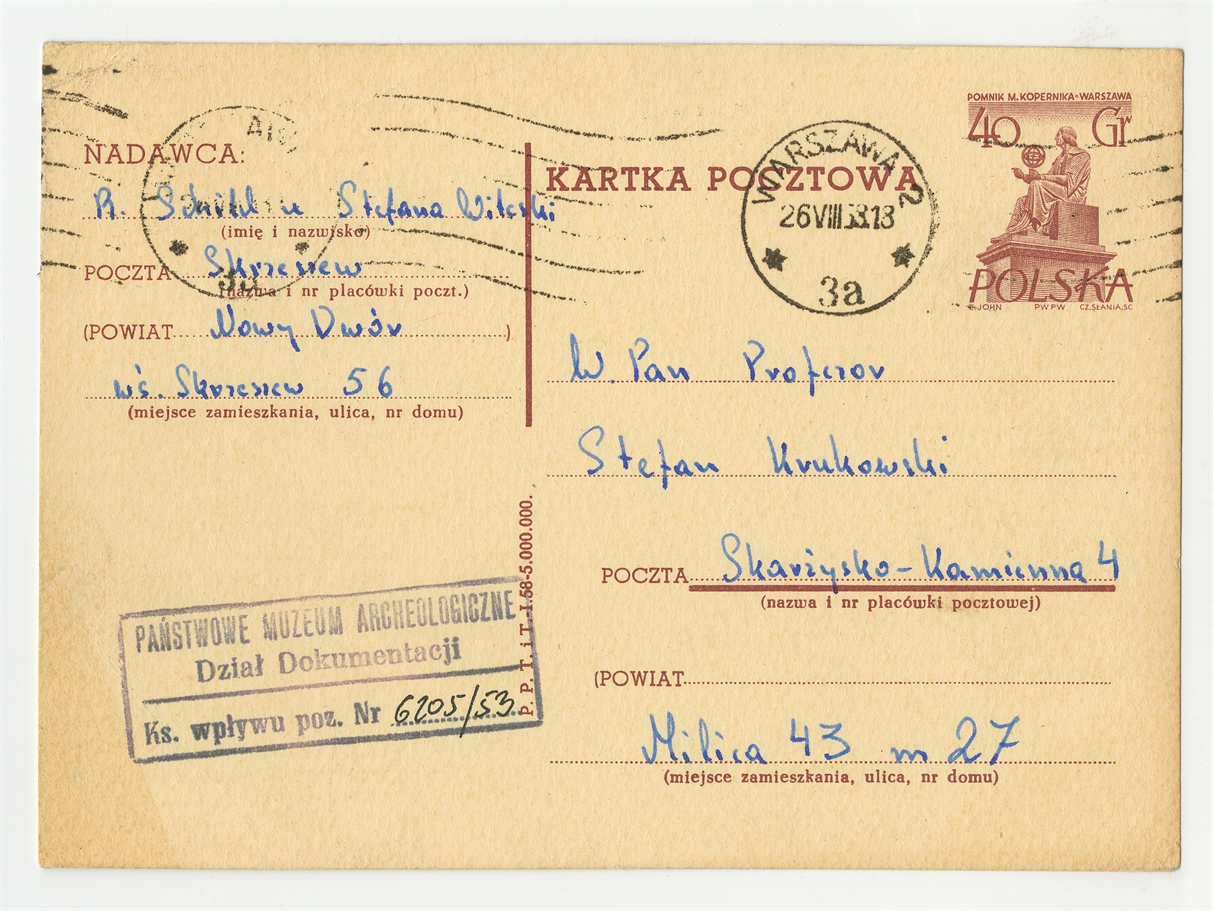 NADAWCA:
R. Schild u Stefana Witeski
(imię i nazwisko)
POCZTA Skrzesiew
(nazwa i nr placówki poczt.)
(POWIAT Nowy Dwór )
wś. Skrzesiew 56
(miejsce zamieszkania, ulica, nr domu)
KARTKA POCZTOWA
WARSZAWA 2
26 VIII 58.18
3a
3a
POMNIK M. KOPERNIKA-WARSZAWA
40 Gr
POLSKA
JOHN PWPW CZ.SŁANIA,SC
W. Pan Profesor
Stefan Krukowski
POCZTA Skarżysko-Kamienna 4
(nazwa i nr placówki pocztowej)
(POWIAT
Milica 43 m 27
(miejsce zamieszkania, ulica, nr domu)
P. P. T. i T. I.58-5.000.000.
PAŃSTWOWE MUZEUM ARCHEOLOGICZNE
Dział Dokumentacji
Ks. wpływu poz. Nr 6205/53